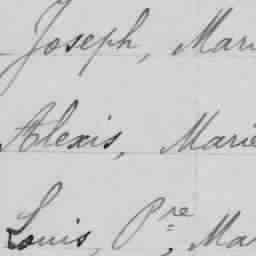 Joseph, Mari
Alexis, Marie
Louis, Pre, Mar